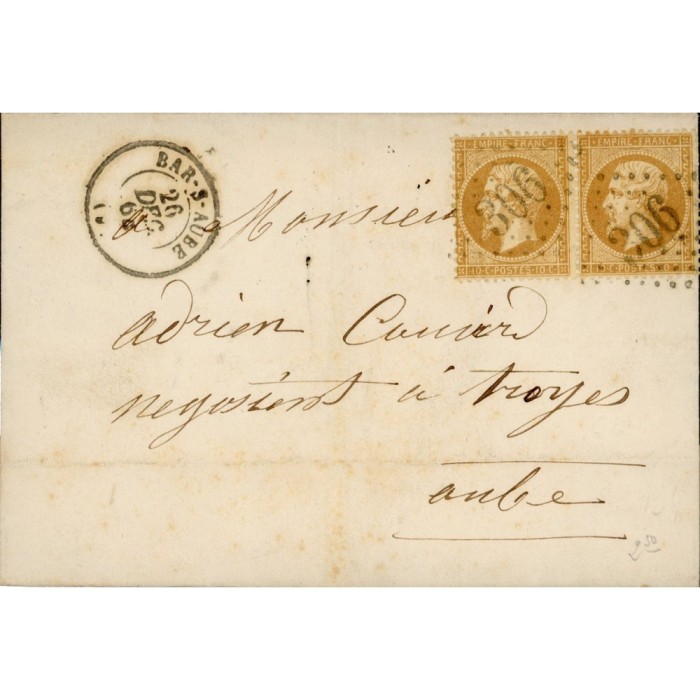 BAR-S-AUBE
26
DEC.
(9)
EMPIRE FRANC
306
10 C POSTES 10 C
EMPIRE FRANC
306
C POSTES
a Monsieur
adrien
negosient à troyes
aube
2 50